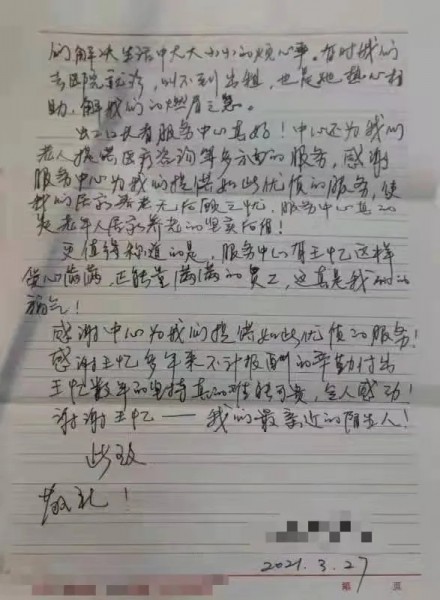 的解决生活中大大小小的烦心事。有时我们
去医院就诊，叫不到出租，也是她热心相
助，解我们的燃眉之急。
长者服务中心真好！中心还为我们
老人提供医疗咨询等多方面的服务，感谢
服务中心为我们提供如此优质的服务，使
我们居家养老无后顾之忧，服务中心真的
是老年人居家养老的坚实后盾！
更值得称道的是，服务中心有王忆这样
爱心满满，正能量满满的员工，这真是我们的
福气！
感谢中心为我们提供如此优质的服务！
感谢王忆多年来不计报酬的辛勤付出
王忆数年的坚持真的难能可贵，令人感动！
谢谢王忆——我们最亲近的陌生人！
此致
敬礼！
2021.3.27
第 页